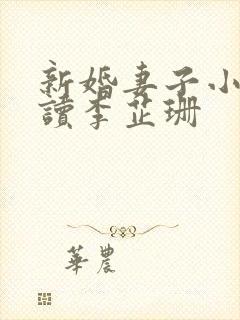 新婚妻子小
讀李芷珊
華農